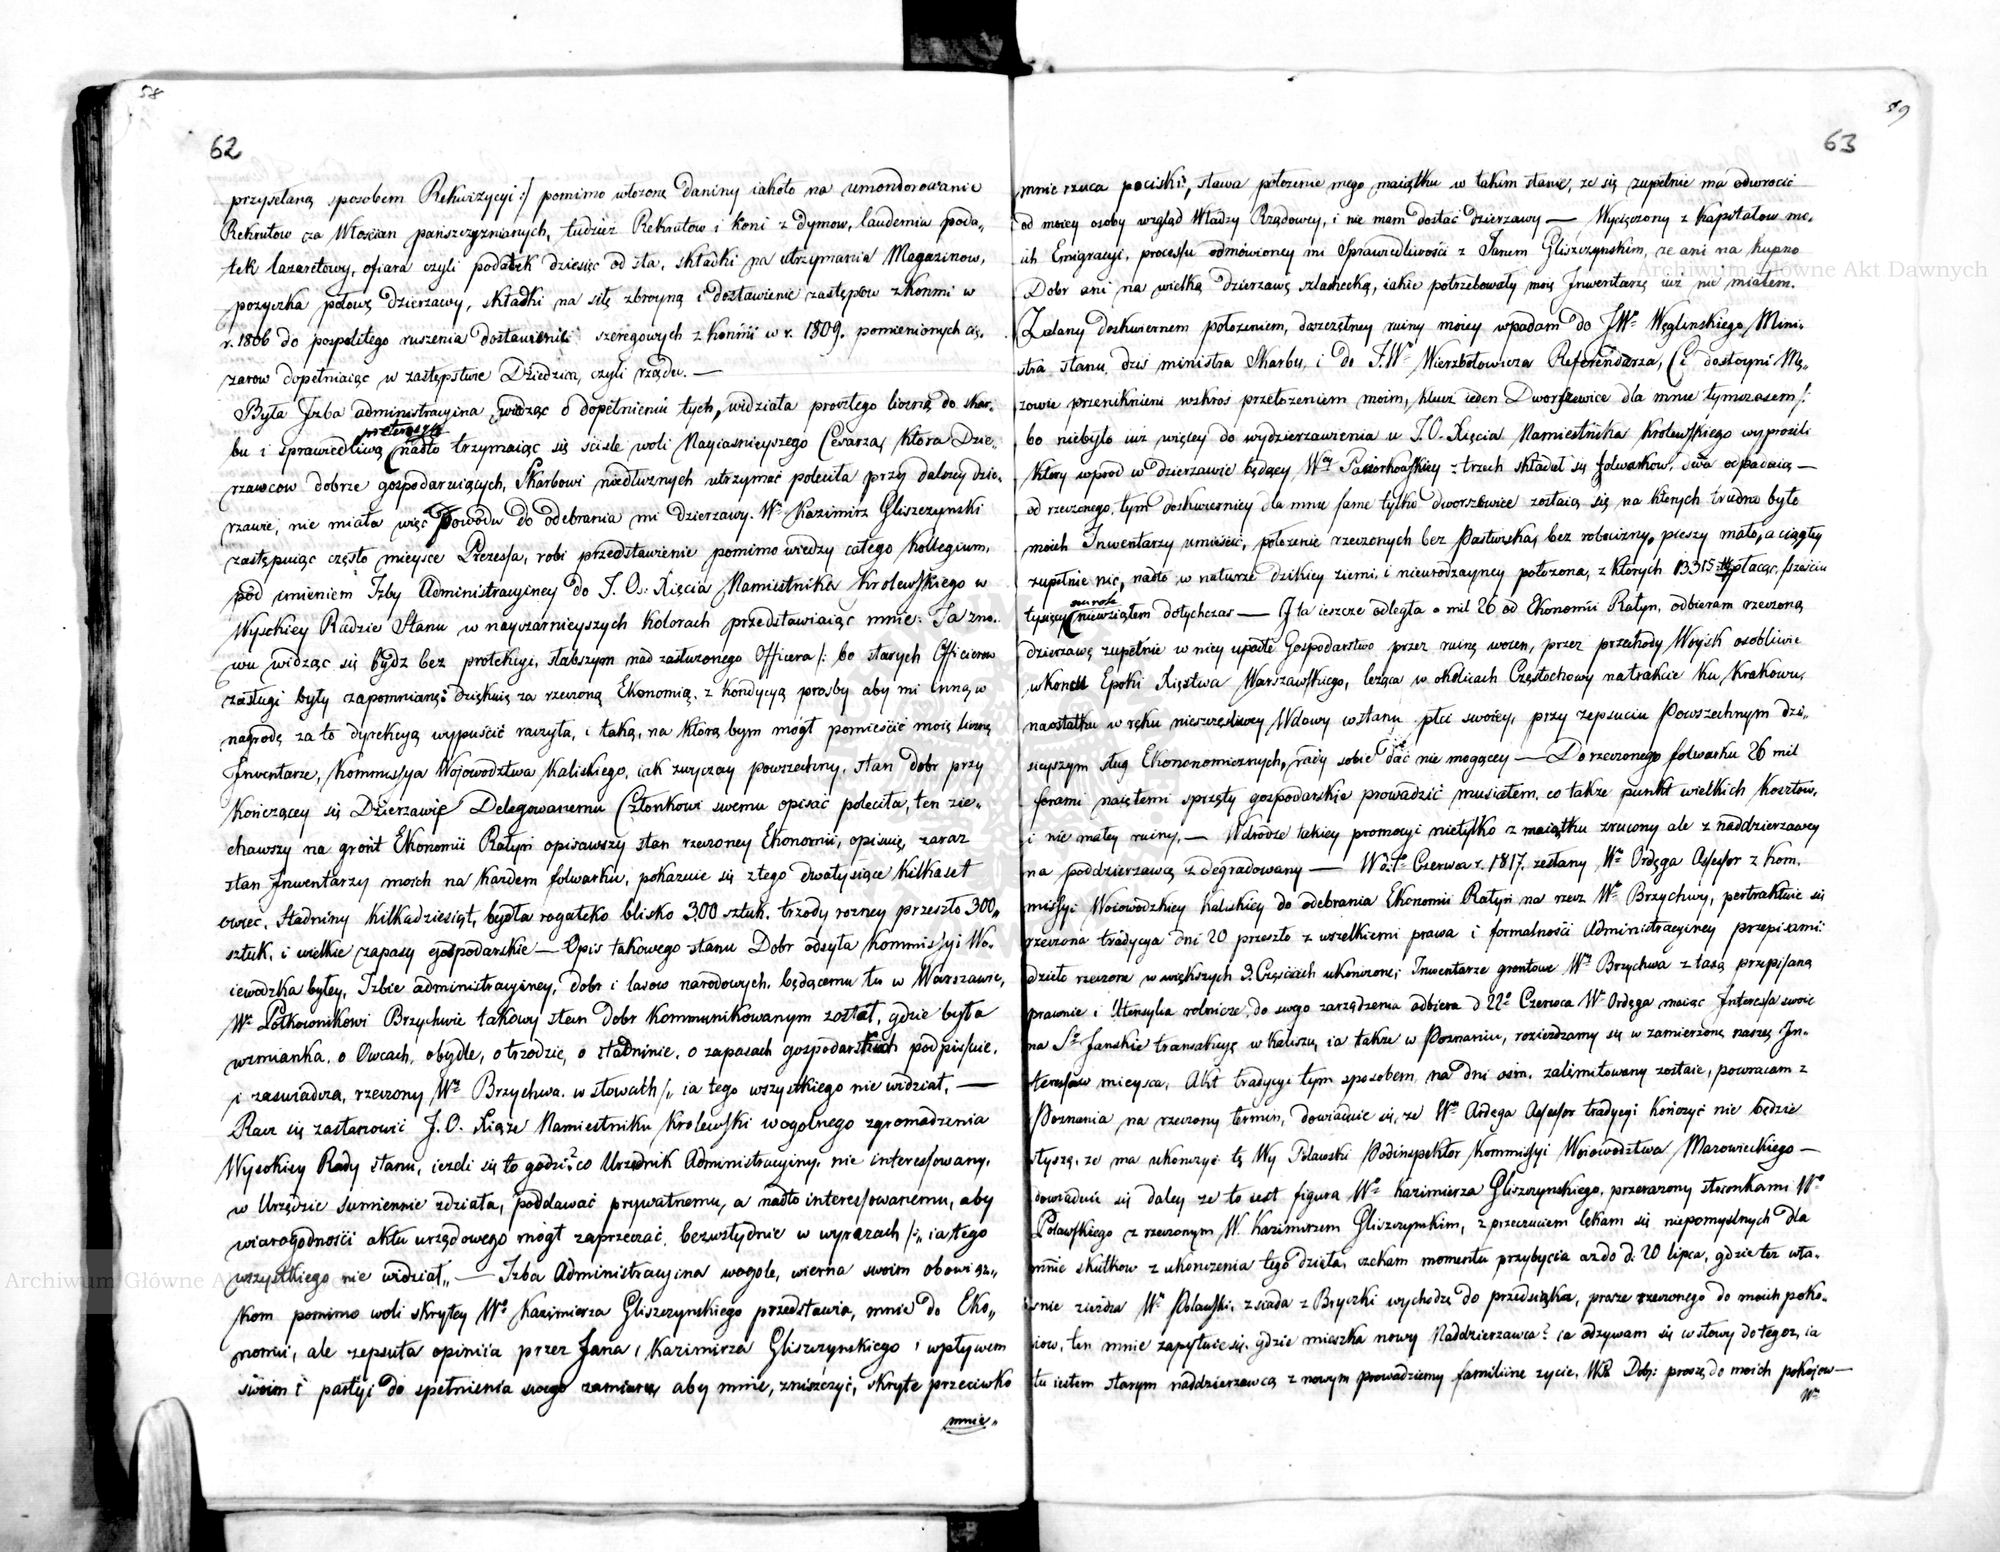 58
62
przysłaną sposobem Rekwizycyi :/ pomimo włożone daniny iakoto na umondorowanie
Rekrutow cza Włoscian pańszczyznianych, tudzież Rekrutow i koni z dymow, laudemia poda„
tek lazaretowy, ofiara czyli podatek dziesięc od sta, składki na utrzymania Magazinow,
pozyczka połowę dzierzawy, składki na siłę zbroyną i dostawienie zastępow z końmi w
r. 1806 do pospolitego ruszenia dostawienie szeregowych z końmi w r. 1809. pomienionych cię.
zarow dopełniaiąc w zastępstwie Dziedzica, czyli rządu. —
Była Izba administracyina widząc o dopełnieniu tych, widziała prosztego liczną do skar.
pretensyą
bu i sprawiedliwą (nadto trzymaiąc się scisle woli Nayiasnieyszego Cesarza, która Dzie.
rzawcow dobrze gospodaruiących, Skarbowi niedłużnych utrzymać poleciła przy dalszey dzie.
rzawie, nie miała więc Powodu do odebrania mi dzierzawy. Wy Kazimirz Gliszczynski
zastępuiąc często mieysce Prezesa, robi przedstawienie pomimo wiedzy całego Kollegium,
pod imieniem Izby Administracyiney do J. O. Xięcia Namiestnika Krolewskiego w
Wysokiey Radzie Stanu w nayczarnieyszych kolorach przedstawiaiąc mnie. Ja zno..
wu widząc się bydz bez protekcyi, słabszym nad zasłużonego Officera /: bo starych Officerow
zasługi były zapomniane :/ dziękuię za rzeczoną Ekonomią, z kondycyą prosby aby mi inną w
nagrodę za to dyrekcyą wypuścić raczyła, i taką, na którą bym mógł pomieścić moie liczne
Inwentarze, Kommissya Woiowodztwa Kaliskiego, iak zwyczay powszechny, stan dobr przy
Kończącey się Dzierzawie Delegowanemu Członkowi swemu opisać poleciła, ten zie.
chawszy na grónt Ekonomii Ratyń opisawszy stan rzeczoney Ekonomii, opisuię zaraz
stan Inwentarzy moich na każdem folwarku, pokazuie się z tego dwatysiące kilkaset
owiec, Stadniny kilkadziesiąt, bydła rogateko blisko 300 sztuk. trzody rozney przeszło 300„
sztuk, i wielkie zapasy gospodarskie — Opis takowego stanu Dobr odsyła Kommissyi Wo.
iewodzka byłey, Izbie administracyiney, dobr i lasow narodowych, będącemu tu w Warszawie,
Wmu Połkownikowi Brzychwie takowy stan dobr kommunikowanym został, gdzie była
wzmianka, o Owcach, o bydle, o trzodzie, o stadninie, o zapasach gospodarskich podpisuie,
i zaswiadcza, rzeczony Wy Brzychwa. w słowach /„ ia tego wszystkiego nie widział, —
Racz się zastanowić J. O. Xiąże Namiestniku Krolewski w ogólnego zgromadzenia
Wysokiey Rady stanu, iezeli się to godzi? co Urzędnik Administracyiny, nie interessowany,
w Urzędzie sumiennie zdziała, poddawać prywatnemu, a nadto interessowanemu, aby
wiarogodności aktu urzędowego mógł zaprzeczać bezwstydnie w wyrazach /: „ ia tego
wszystkiego nie widział„ — Izba Administracyina wogole, wierna swoim obowiąz„
kom pomimo woli skrytey Wo Kazimierza Gliszczynskiego przedstawia, mnie do Eko„
nomii, ale zepsuta opiniia przez Jana i Kazimirza Gliszczynskiego i wpływem
swoim i partyi do spełnienia swego zamiaru, aby mnie, zniszczyć, skryte przeciwko
mnie„
59
63
mnie rzuca pociski, stawa położenie mego maiątku w takim stanie, ze się zupełnie ma odwrócić
od moiey osoby wzgląd Władzy Rządowey, i nie mam dostać dzierzawy — Wycięczony z kapitałow mo.
ich Emigracyi, processu odmówioney mi Sprawiedliwości z Janem Gliszczynskim, ze ani na kupno
Dobr ani na wielką dzierzawę szlachecką, iakie potrzebowały moie Inwentarze iuz nie miałem.
Zalany doskwiernem położeniem, doszczętney ruiny moiey wpadam do JWo Węglinskiego Mini.
stra stanu, dziś ministra Skarbu, i do J. Wo Wierzbołowicza Referendarza, Ci dostoyni Mę.
zowie przeniknieni wskroś przełożeniem moim, klucz ieden Dworszewice dla mnie tymczasem /:
bo niebyło iuz więcey do wydzierzawienia u J. O. Xięcia Namiestnika Krolewskiego wyprosili
który wprod w dzierzawie będący Wey Paciorkowskiey z trzech składał się folwarkow, dwa odpadaią —
od rzeczonego, tym doskwierniey dla mnie same tylko dworszewice zostaią się na których trudno było
moich Inwentarzy umieścić, położenie rzeczonych bez Pastwiska, bez robocizny, pieszy mało, a ciągłey
zupełnie nic, nadto w naturze dzikiey ziemi, i nieurodzayney położona, z których 13315 złł płacąc, sześciu
na rok
tysięcy (niewziąłem dotychczas — Jta ieszcze odległa o mil 26 od Ekonomii Ratyn, odbieram rzeczoną
dzierzawę zupełnie w niey upadłe Gospodarstwo przez ruinę wojen, przez przechody Woysk osobliwie
w końcu Epoki Xięstwa Warszawskiego, leżąca w okolicach Częstochowy na trakcie ku Krakowu,
naostatku w ręku nieszczęsliwey Wdowy w stanu płci swoiey, przy zepsuciu Powszechnym dzi„
sieyszym sług Ekononomicznych, rady sobie dać nie mogącey — Do rzeczonego folwarku 26 mil
forami naiętemi sprzęty gospodarskie prowadzić musiałem, co także punkt wielkich kosztow,
i nie małey ruiny, — W drodze takiey promocyi nietylko z maiątku zrucony ale z naddzierzawcy
na poddzierzawcę zdegradowany — W d. 1o Czerwca r. 1817. zesłany Wy Ordęga Assesor z Kom.
missyi Woiowodzkiey Kaliskiey do odebrania Ekonomii Ratyń na rzecz Wo Brzychwy, pertraktuie się
rzeczona tradycya dni 20 przeszło z wszelkiemi prawa i formalności Administracyiney przepisami:
dzieło rzeczone w większych 3. Częściach ukończone; Inwentarze gróntowe Wy Brzychwa z taxą przepisaną
prawnie i Utensylia rolnicze, do swego zarządzenia odbiera d 22o Czerwca Wy Ordęga maiąc Interessa swoie
na So Janskie transakcyę w Kaliszu, ia także w Poznaniu, roziezdzamy się w zamierzone naszę In„
teressow mieysca, Akt tradycyi tym sposobem, na dni ośm, zalimitowany zostaie, powracam z
Poznania na rzeczony termin, dowiaduie się, ze Wy Ordęga Assesor tradycyi kończyć nie będzie
słyszę, ze ma ukończyć tę Wy Polawski Podinspektor Kommissyi Woiowodztwa Mazowieckiego —
dowiaduie się daley ze to iest figura Wo Kazimierza Gliszczynskiego, przerazony stosunkami Wo
Polawskiego z rzeczonym W. Kazimirzem Gliszczynskim, z przeczuciem lękam się niepomyslnych dla
mnie skutkow z ukończenia tego dzieła, czekam momentu przybycia az do d. 20 lipca, gdzie tez wła.
snie zieżdza Wy Polawski, zsiada z Bryczki wychodzę do przedsiąka, proszę rzeczonego do moich poko„
iow, ten mnie zapytuie się, gdzie mieszka nowy Naddzierzawca? ia odzywam się w słowy do tegoz, ia
tu iestem starym naddzierzawcą z nowym prowadziemy familiine zycie, WP Dob: proszę do moich pokoiow —
Wy
Archiwum Główne Akt Dawnych